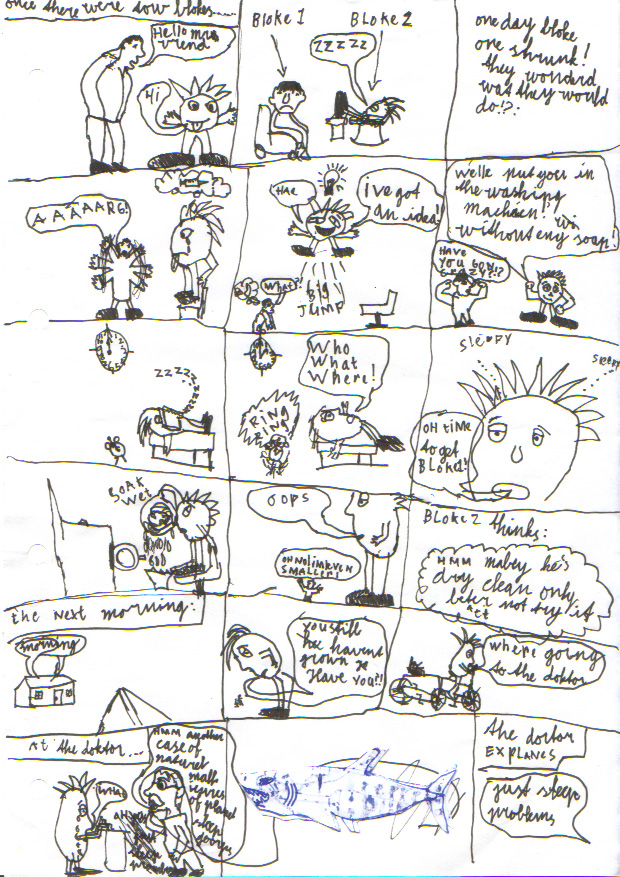 once there were tow blokes.....
Hello mus
vriend
Hi
Bloke 1
Bloke 2
ZZZZZ
one day bloke
one shrunk!
they wonderd
wat they would
do!?:
AAÀAARG!
HAE
i've got
an idea!
What?!
BIG
JUMP
Welk put you in
the washing
machien! Wi
without eny soap!
HAVE
YOU GON
CRAZY?!?
ZZZZZ
RING
RING
Who
What
Where!
sleepy
sleepy
OH time
to get
Bloke1!
SOAK
WET
OOPS
OH NO! imEVEN
SMALLER!
Bloke 2 thinks:
HMM mabey he's
dry clean only
beter not try it
act
the next morning:
morning
you still
hee havent
grown
Have you?!
where going
to the doktor
At the doktor...
WHAT
HMM another
case of
naturel
sleep
the doctor
EXPLANES
just sleep
problems